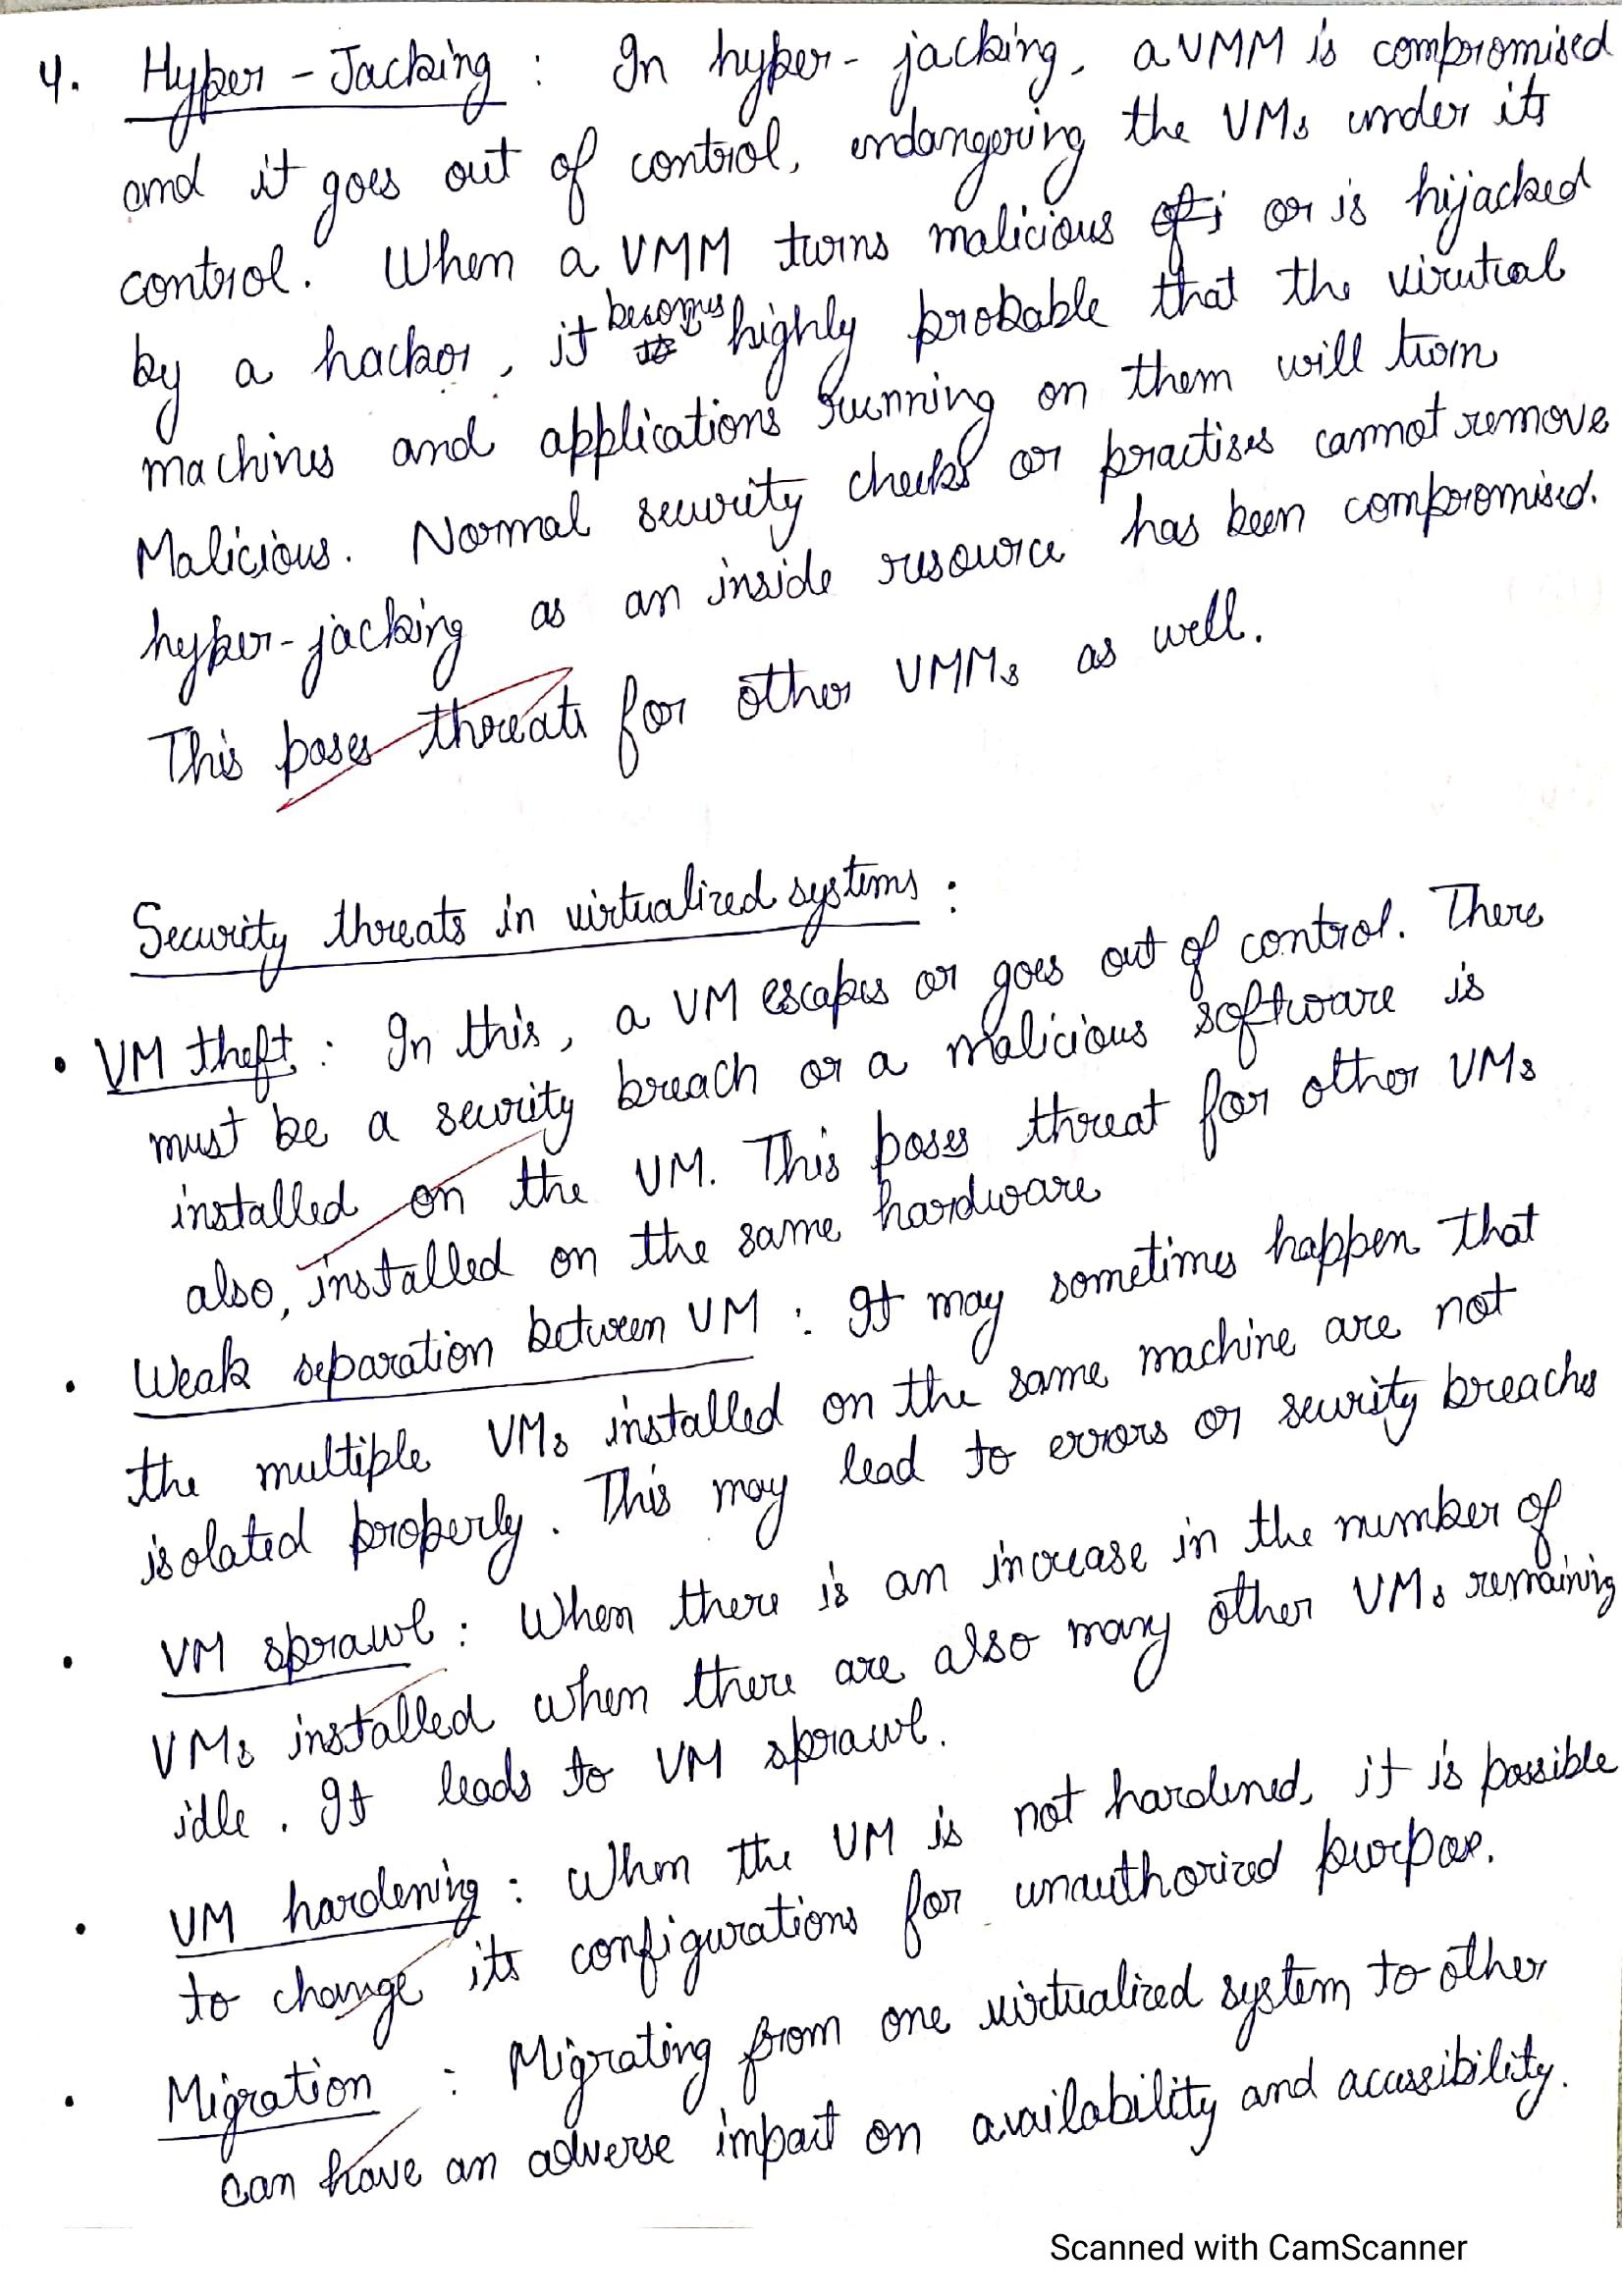 4. Hyper-Jacking : In hyper-jacking, a VMM is compromised
and it goes out of control, endangering the VMs under its
control. When a VMM turns malicious or is hijacked
by a hacker, it becomes highly probable that the virutal
machines and applications running on them will turn
Malicious. Normal security checks or practises cannot remove
hyper-jacking as an inside resource has been compromised.
This poses threats for other VMMs as well.
Security threats in virtualized systems :
• VM theft : In this, a VM escapes or goes out of control. There
must be a security breach or a malicious software is
installed on the VM. This poses threat for other VMs
also, installed on the same hardware
• Weak separation between VM : It may sometimes happen that
the multiple VMs installed on the same machine are not
isolated properly. This may lead to errors or security breaches
• VM sprawl : When there is an increase in the number of
VMs installed when there are also many other VMs remaining
idle. It leads to VM sprawl.
• VM hardening : When the VM is not hardened, it is possible
to change its configurations for unauthorized purpose.
• Migration : Migrating from one virtualized system to other
can have an adverse impact on availability and accessibility.
Scanned with CamScanner